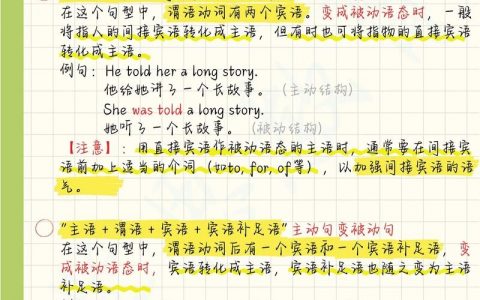 在这个句型中，谓语动词有两个宾语。变成被动语态时，一般
将指人的间接宾语转化成主语，但有时也可将指物的直接宾语
转化成主语。
例句：He told her a long story.
他给她讲了一个长故事。（主动结构）
She was told a long story.
她听了一个长故事。（被动结构）
【注意】：用直接宾语作被动语态的主语时，通常要在间接宾
语前加上适当的介词（如to, for, of等），以加强间接宾语的语
气。
“主语+谓语+宾语+宾语补足语”主动句变被动句
在这个句型中，谓语动词后有一个宾语和一个宾语补足语，变
成被动语态时，宾语转化成主语，宾语补足语也随之变为主语
补足语。